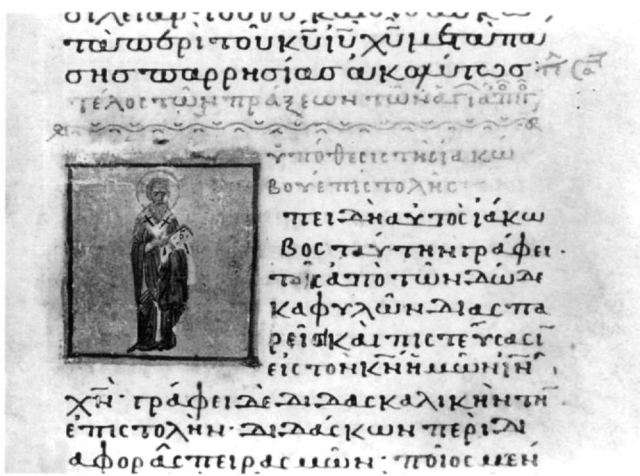 τὰ περὶ τοῦ κ̅υ̅ ἰ̅υ̅ χ̅υ̅ μετὰ πά
σης παρρησίας ἀκωλύτως
τέλος τῶν πράξεων τῶν ἁγί
ὑπόθεσις τῆς ἰακώ
βου ἐπιστολῆς
πειδὴ αὐτὸς ἰάκω
βος ταύτην γράφει·
τοῖς ἀπὸ τῶν δώδε
κα φυλῶν διασπα
ρεῖσι καὶ πιστεύσασι
εἰς τὸν κ̅ν̅ ἡμῶν ἰ̅ν̅
χ̅ν̅· γράφει δὲ διδασκαλικὴν τὴν
ἐπιστολὴν· διδάσκων περὶ δι
αφορᾶς πειρασμῶν· ποῖος μὲν